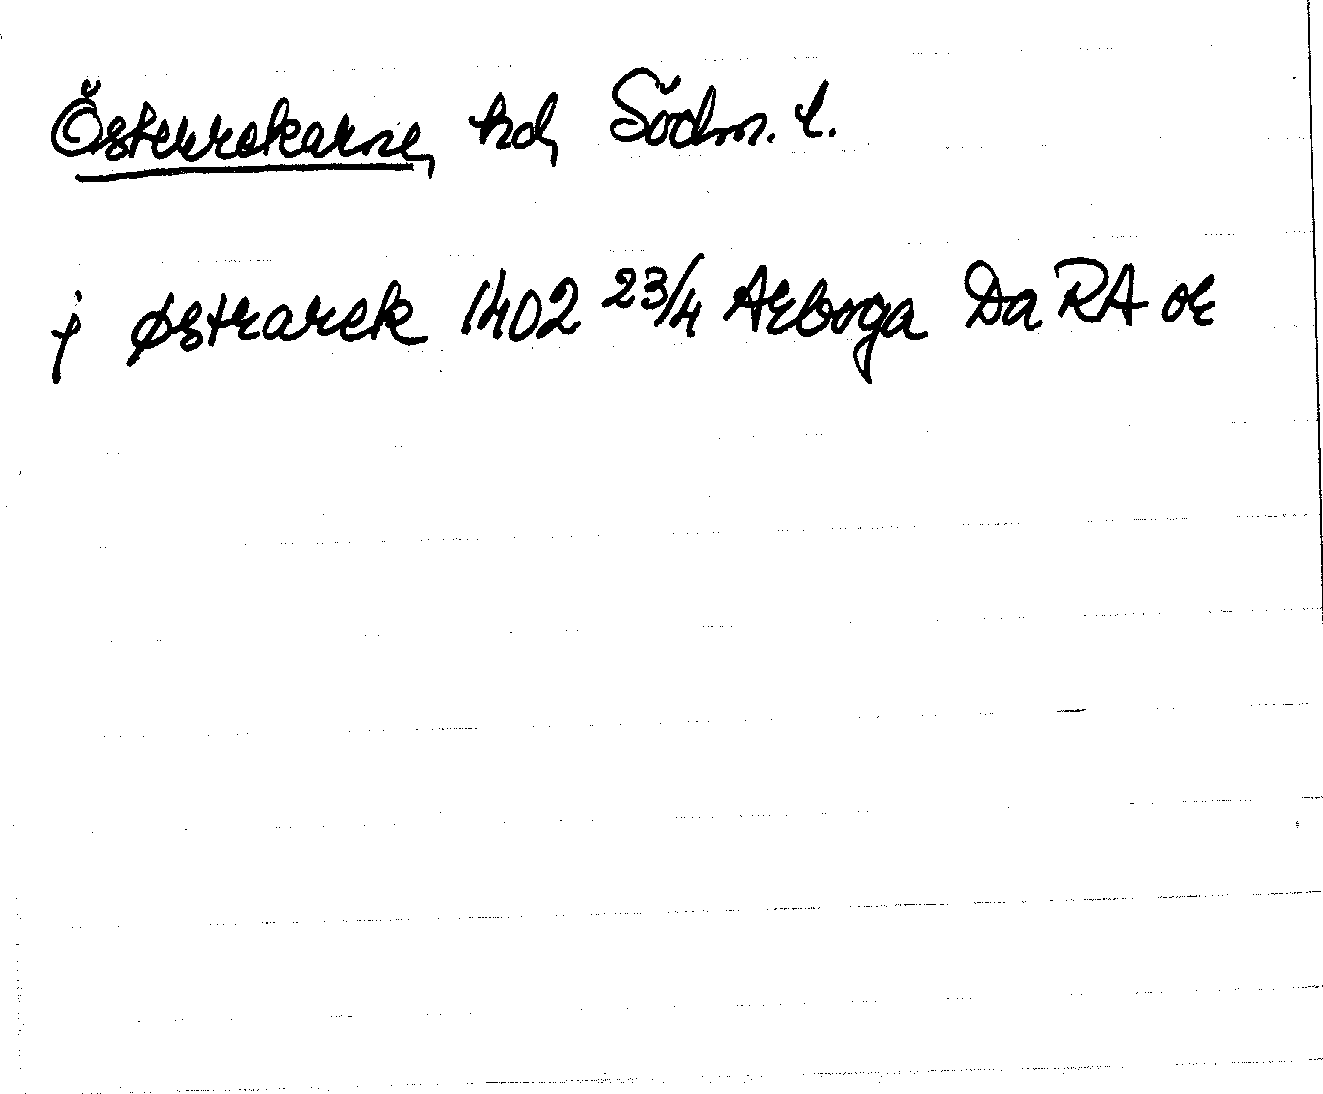 Österrekarne, hd, Södm. l.
j østrarek 1402 23/4 Arboga Da RA or